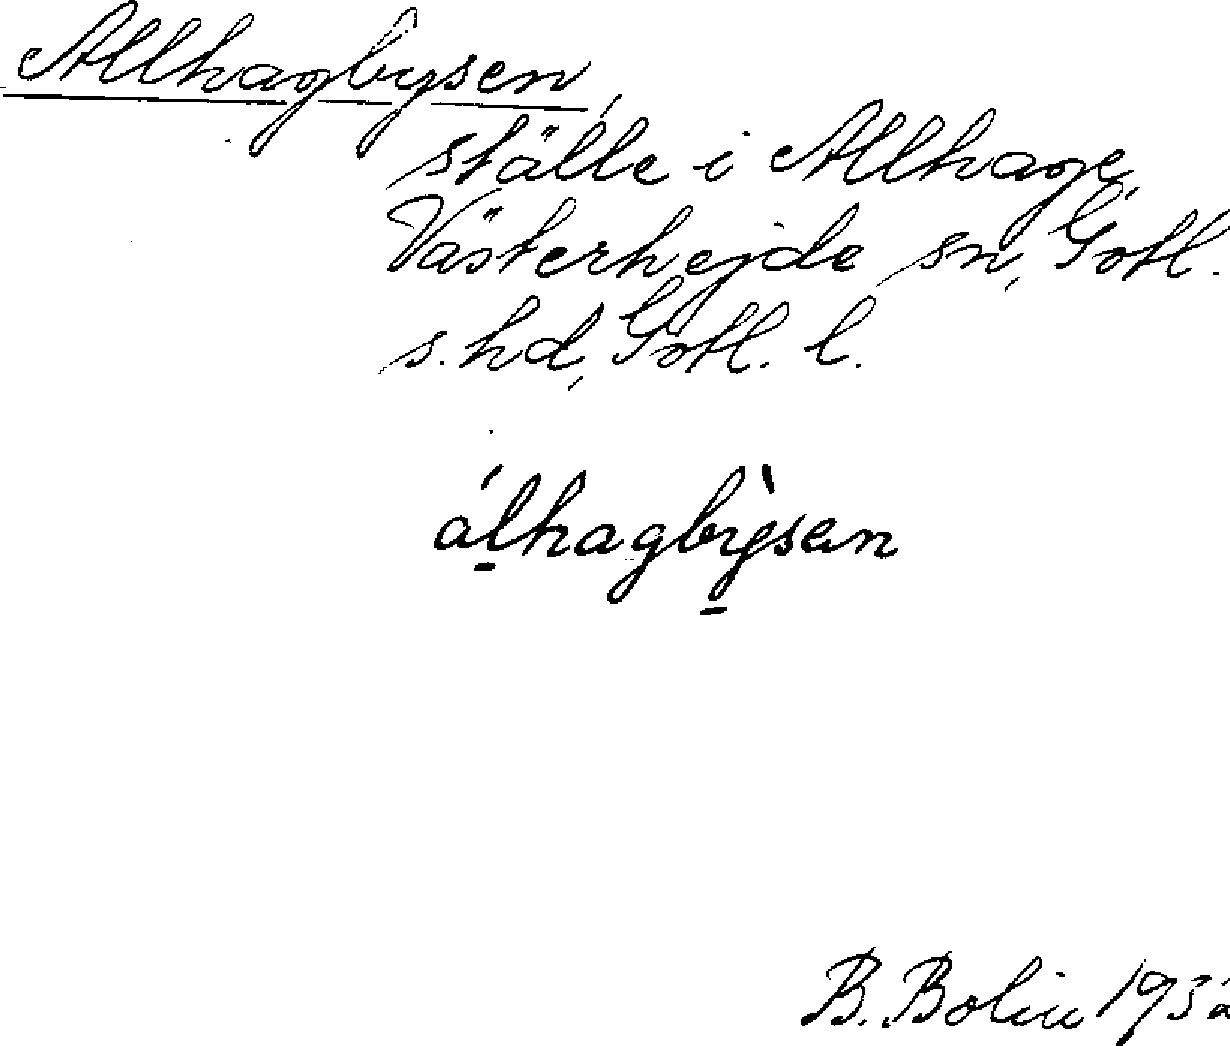 Allhagbysen,
ställe i Allhage,
Västerhejde sn, Gotl.
s. hd, Gotl. l.
álhagbỳsen
B. Bolin